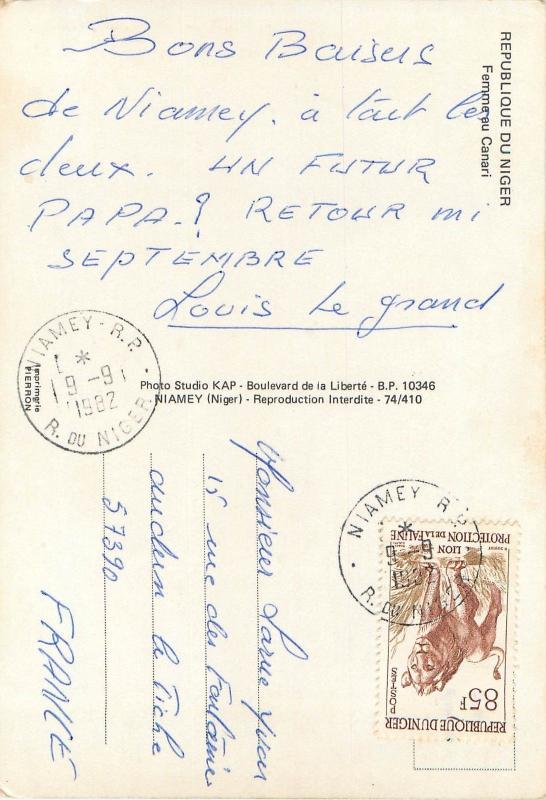 Bons Baisers
de Niamey. à tout les
deux. UN FUTUR
PAPA.? RETOUR mi
SEPTEMBRE
Louis le grand
REPUBLIQUE DU NIGER
Femme au Canari
Photo Studio KAP - Boulevard de la Liberté - B.P. 10346
NIAMEY (Niger) - Reproduction Interdite - 74/410
Imprimerie
PIERRON
NIAMEY - R.P.
9-9
1982
R. DU NIGER
Monsieur Yvan
15 rue des Fontaines
audun le Tiche
57390
FRANCE
NIAMEY R.P.
9-9
1982
R. DU NIGER
PROTECTION DE LA FAUNE
LION
POSTES
85F
REPUBLIQUE DU NIGER